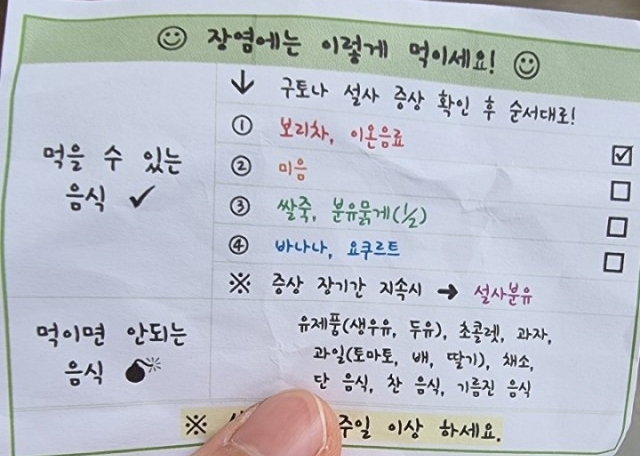 장염에는 이렇게 먹이세요!
↓ 구토나 설사 증상 확인 후 순서대로!
먹을 수 있는
음식 ✓
① 보리차, 이온음료
② 미음
③ 쌀죽, 분유묽게(1/2)
④ 바나나, 요쿠르트
※ 증상 장기간 지속시 → 설사분유
먹이면 안되는
음식
유제품(생우유, 두유), 초콜렛, 과자,
과일(토마토, 배, 딸기), 채소,
단 음식, 찬 음식, 기름진 음식
※ 주일 이상 하세요.